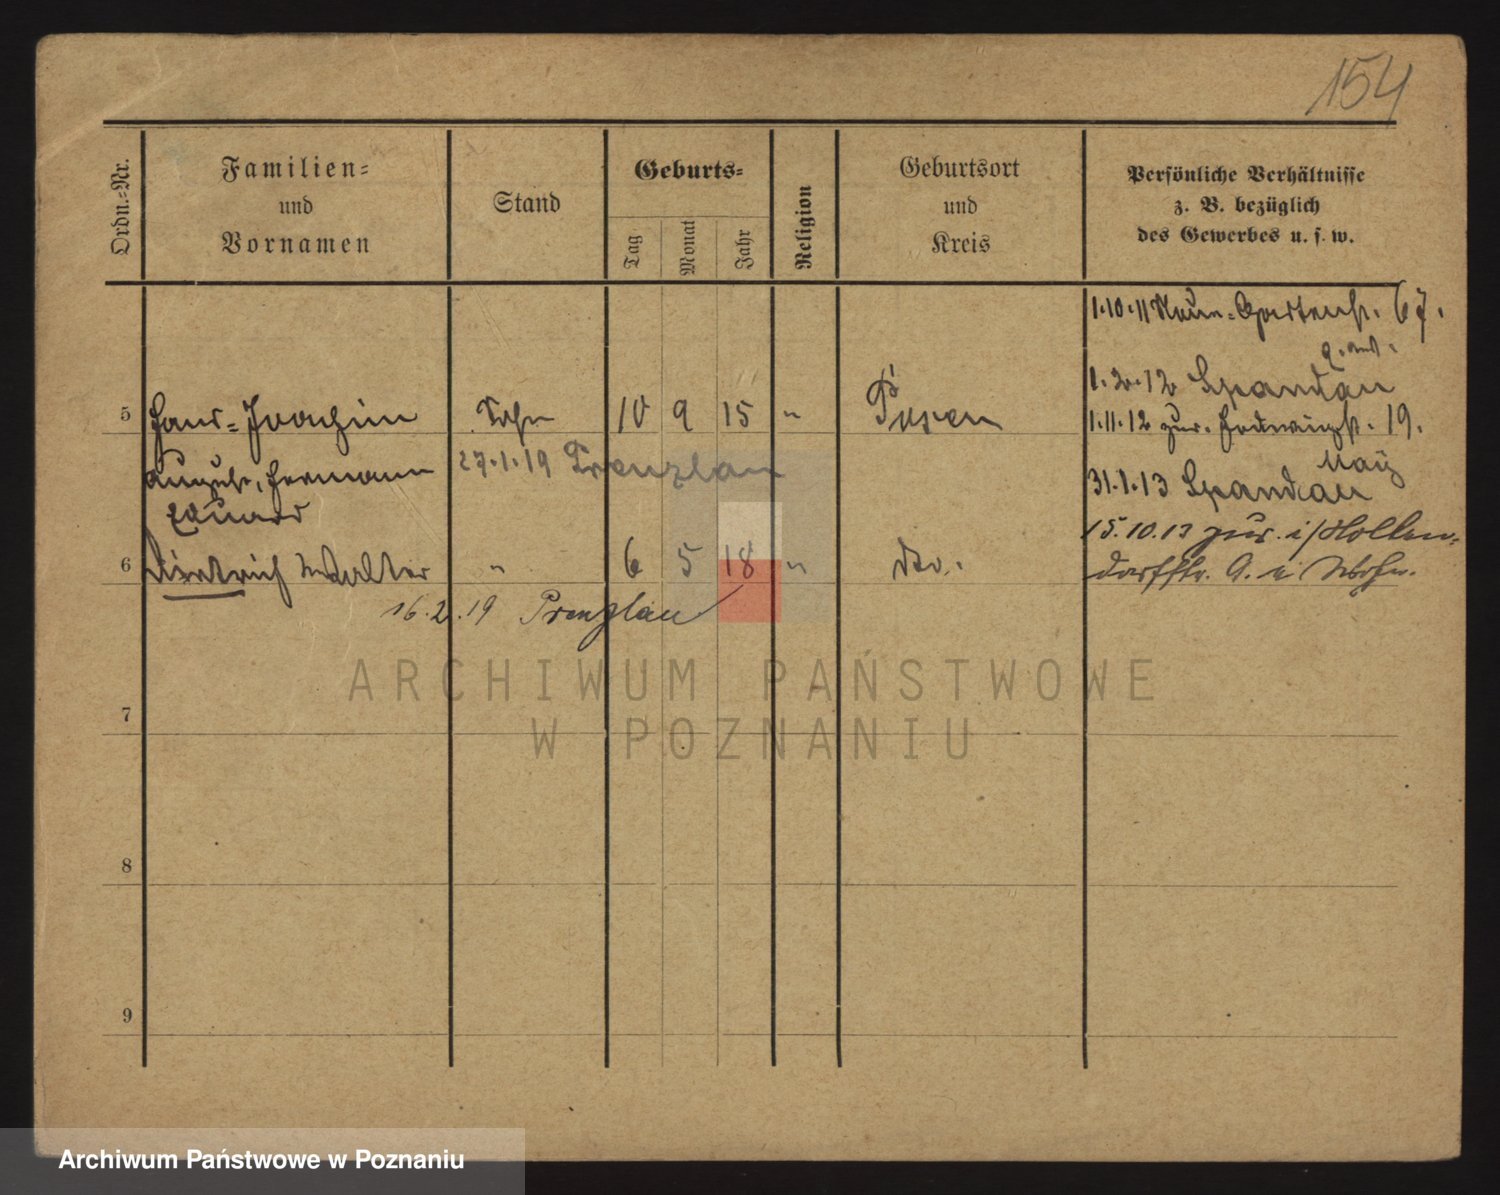 154
Ordn.=Nr.
Familien=
und
Vornamen
Stand
Geburts=
Tag
Monat
Jahr
Religion
Geburtsort
und
Kreis
Persönliche Verhältnisse
z. B. bezüglich
des Gewerbes u. s. w.
1.10.11 Gartenstr. 67.
1.2.12 Spandau
1.11.12 zur. 19.
31.1.13 Spandau
15.10.13 zur. i/Hollen=
dorffstr. 9. i
5 Hans=Joachim Sohn 10 9 15 " Posen
August, Hermann 27.1.19 Prenzlau
Eduard
6 Dietrich Walter " 6 5 18 " dto.
16.2.19 Prenzlau
7
8
9
ARCHIWUM PAŃSTWOWE
W POZNANIU
Archiwum Państwowe w Poznaniu